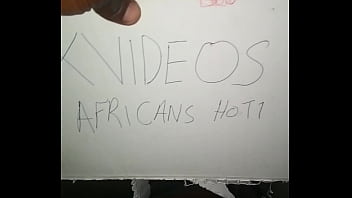 XVIDEOS
AFRICANS HOT1